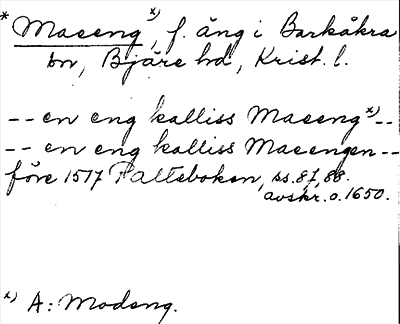 * Maseng x), f. äng i Barkåkra
sn, Bjäre hd, Krist. l.
-- en eng kalliss Maseng x)--
-- en eng kalliss Masengen --
före 1517 Palteboken, ss. 87, 88.
avskr. o. 1650.
x) A: Modeng.